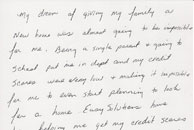 My dream of giving my family a
New home was almost going to be impossible
for me. Being a single parent & going to
School put me in dept and my credit
scores were very low & making it impossible
for me to even start planning to look
for a home. Easy Solutions have
helping me get my credit scores